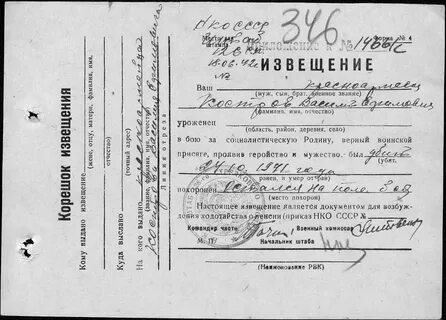 НКО СССР
346
Форма № 4
Приложение к № 1466/с
18.06.42
№
ИЗВЕЩЕНИЕ
Ваш красноармеец
(муж, сын, брат, военное звание)
Костров Василий Ефимович
(фамилия, имя, отчество)
уроженец
(область, район, деревня, село)
в бою за социалистическую Родину, верный воинской
присяге, проявив геройство и мужество, был убит
(убит,
1941 года
ранен, и умер от ран)
похоронен Остался на поле
(место похорон)
Настоящее извещение является документом для возбуж-
дения ходатайства о пенсии (приказ НКО СССР №
Командир части
Военный комиссар
М. П.
Начальник штаба
(Наименование РВК)
Корешок извещения
Кому выдано извещение
(жене, отцу, матери, фамилия, имя,
отчество)
Куда выслано
(точный адрес)
На кого выдано
Линия отреза